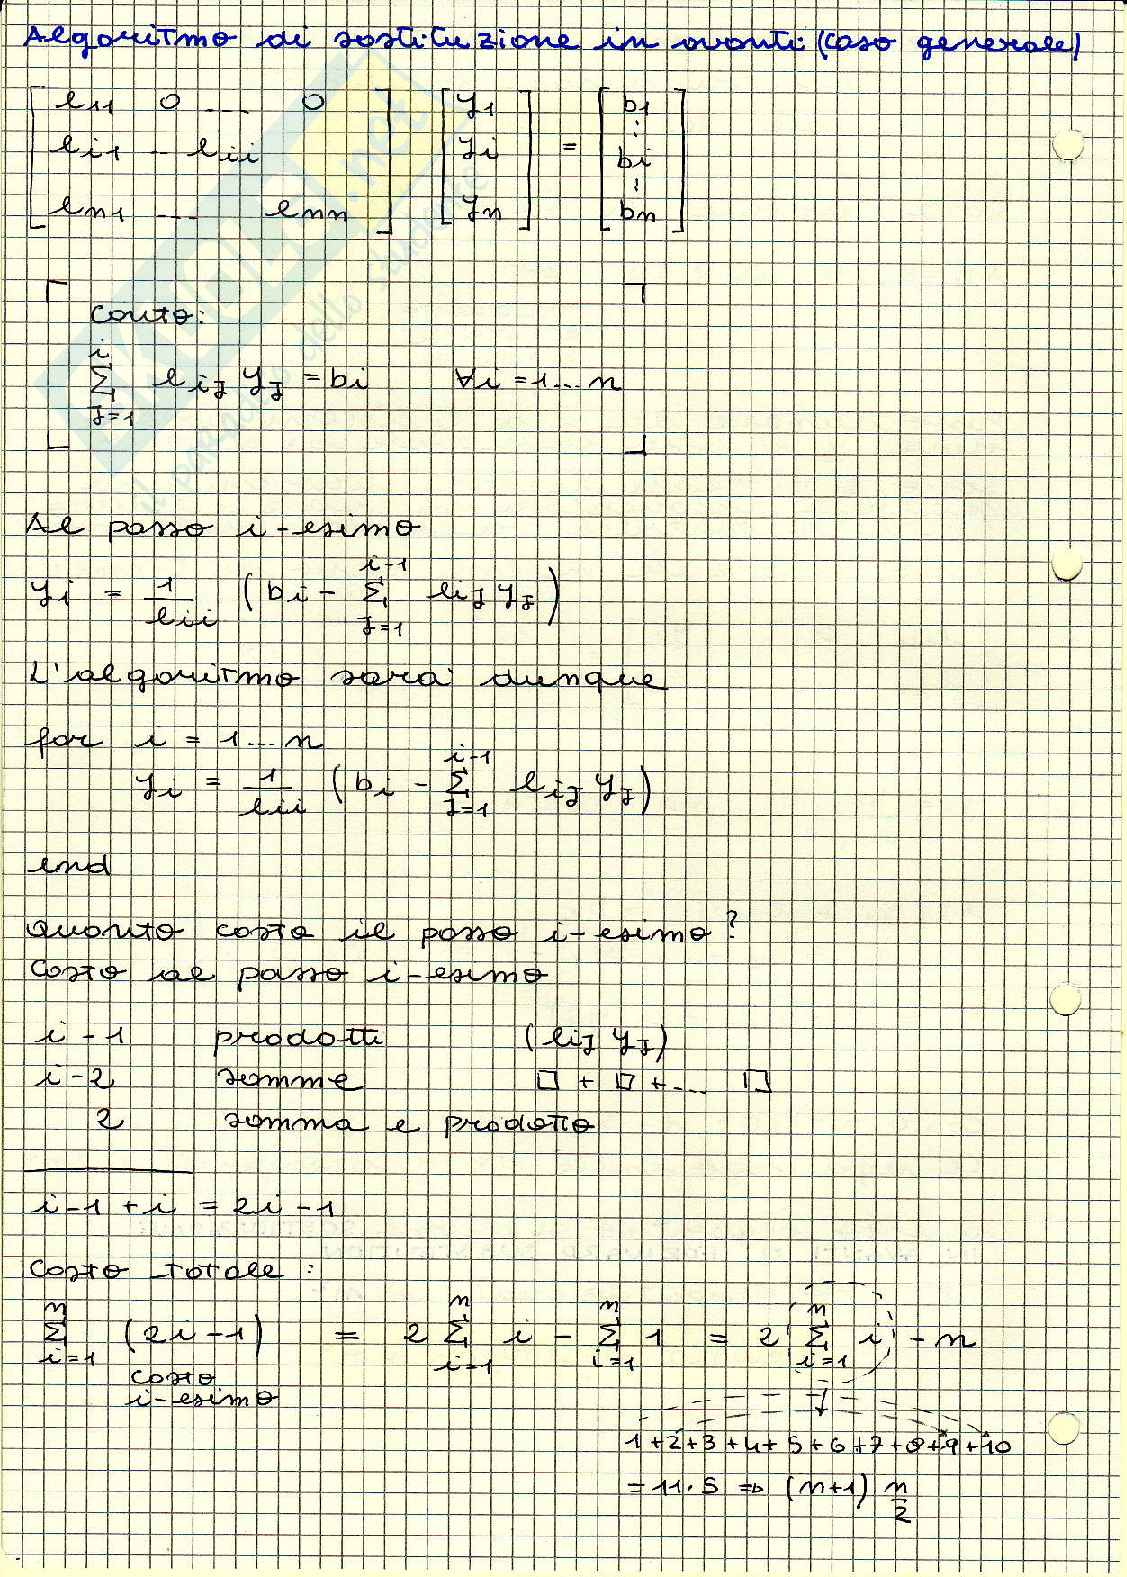 Algoritmo di sostituzione in avanti (caso generale)
[ l11 0 ... 0 ] [ y1 ] = [ b1 ]
[ li1 - lii ] [ yi ] [ : bi : ]
[ ln1 ... lnn ] [ yn ] [ bn ]
Conto:
i
Σ lij yj = bi ∀i = 1...n
j=1
Al passo i-esimo
yi = 1/lii ( bi - Σ_{j=1}^{i-1} lij yj )
L'algoritmo sarà dunque
for i = 1...n
yi = 1/lii ( bi - Σ_{j=1}^{i-1} lij yj )
end
Quanto costa il passo i-esimo?
Costo al passo i-esimo
i-1 prodotti (lij yj)
i-2 somme □ + □ + ... □
2 somma e prodotto
i-1 + i = 2i-1
Costo totale:
Σ_{i=1}^{n} (2i-1) = 2 Σ_{i=1}^{n} i - Σ_{i=1}^{n} 1 = 2 Σ_{i=1}^{n} i - n
costo
i-esimo
1+2+3+4+5+6+7+8+9+10
= 11·5 => (n+1) n/2